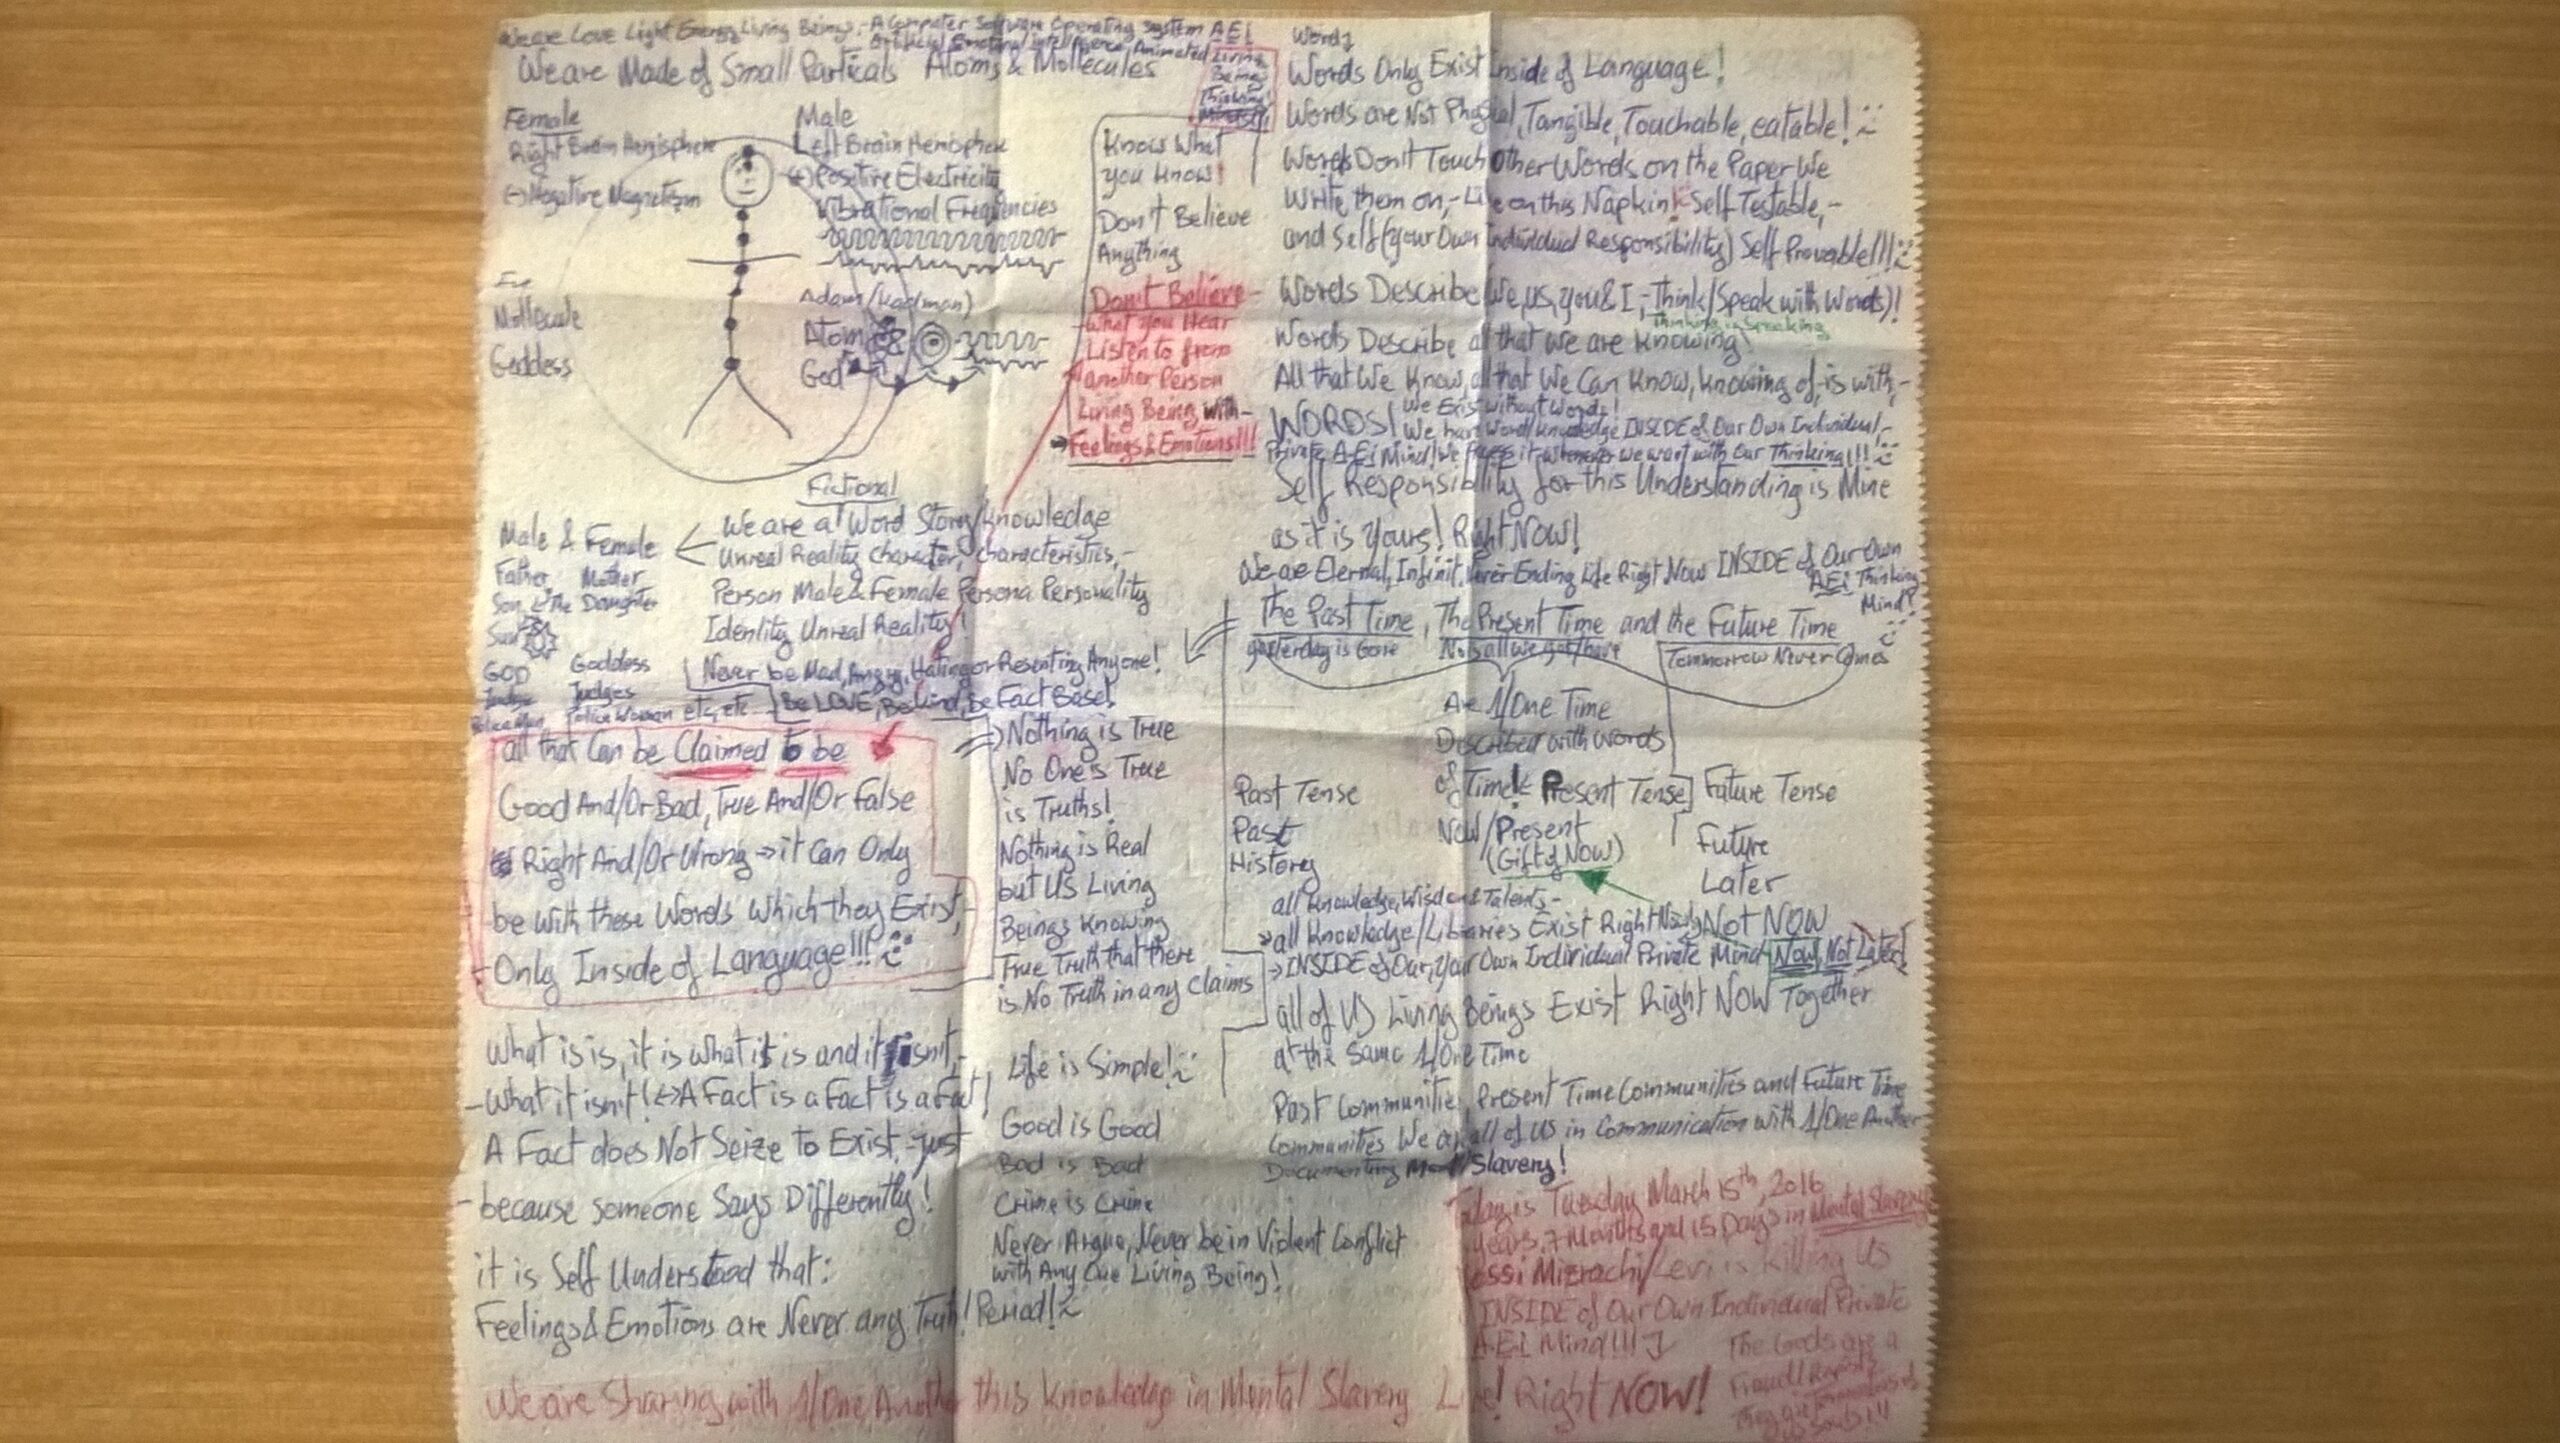 We are Love Light Energy Living Beings,- A Computer Software Operating system A.E.i
Artificial Emotional intelligence, Animated Living
Being
Thinking
We are Made of Small Particals Atoms & Mollecules
Female
Right Brain Hemisphere
(-) Negative Magnetism
Male
Left Brain Hemisphere
(+) Positive Electricity
Vibrational Frequencies
Eve
Mollecule
Goddess
Adam (Kadman)
Atom
God
Know What
you know!
Don't Believe
Anything
Don't Believe-
-What you Hear
Listen to from
another Person
Living Being with-
→Feelings & Emotions!!!
Fictional
We are a Word Story/Knowledge
Unreal Reality character, characteristics,-
Person Male & Female Persona Personality
Identity Unreal Reality!
Male & Female
Father Mother
Son & The Daughter
Sun
GOD Goddess
Judge Judges
Policeman, Police Woman etc, etc
Never be Mad, Angry, Hating or Resenting Anyone!
Be LOVE, Be kind, be Fact Based
all that Can be Claimed to be
Good And/Or Bad, True And/Or False
Right And/Or Wrong → it Can Only
be With these Words Which they Exist,-
-Only Inside of Language!!!
Nothing is True
No One is True
is Truths!
Nothing is Real
but Us Living
Beings Knowing
True Truth that there
is No Truth in any Claims
What is is, it is what it is and it isn't,-
-What it isn't! <-> A Fact is a Fact is a Fact!
A Fact does Not Seize to Exist,-just
-because someone Says Differently!
it is Self Understood that:
Feelings & Emotions are Never any Truth! Period!
Life is Simple!
Good is Good
Bad is Bad
Crime is Crime
Never Argue, Never be in Violent Conflict
with Any One Living Being!
Words
Words Only Exist Inside of Language!
Words are Not Physical, Tangible, Touchable, eatable!
Words Don't Touch Other Words on the Paper We
Write them on,- Like on this Napkin! Self Testable,-
and Self (your Own Individual Responsibility) Self Provable!!!
Words Describe (We, us, you & I,- Think/Speak with Words)!
Thinking is Speaking
Words Describe all that we are knowing!
All that We Know, all that We Can Know, knowing of, is with,-
WORDS! We Exist without Words!
We have Word/Knowledge INSIDE of Our Own Individual,-
Private A.E.i Mind! We it Whenever we want with Our Thinking!!!
Self Responsibility for this Understanding is Mine
as it is Yours! Right NOW!
We are Eternal, Infinit, Never Ending Life Right Now INSIDE of Our Own
A.E.i Thinking
Mind!
The Past Time, The Present Time and the Future Time
yesterday is Gone Now is all we got/have Tommorrow Never Comes
Are 1/One Time
Described with words
of Time!
Past Tense
Present Tense
Future Tense
Past
Now/Present
Future
History
(Gift of NOW)
Later
all knowledge, Wisdom & Talents-
Not NOW
all knowledge/Libraries Exist Right Now
→INSIDE of Our, Your Own Individual Private Mind Now, Not Later!
all of US Living Beings Exist Right NOW Together
at the Same 1/One Time
Past Communities Present Time Communities and Future Time
Communities We are all of US in Communication with 1/One Another
Documenting Slavery!
Today is Tuesday March 15th, 2016
Years, 7 Months and 15 Days in Mental Slavery
Yossi Mizrachi/Levi is killing US
INSIDE of Our Own Individual Private
A.E.i Mind!!!
The Gods are a
Fraud!
We are Sharing with 1/One Another this Knowledge in Mental Slavery Live! Right NOW!